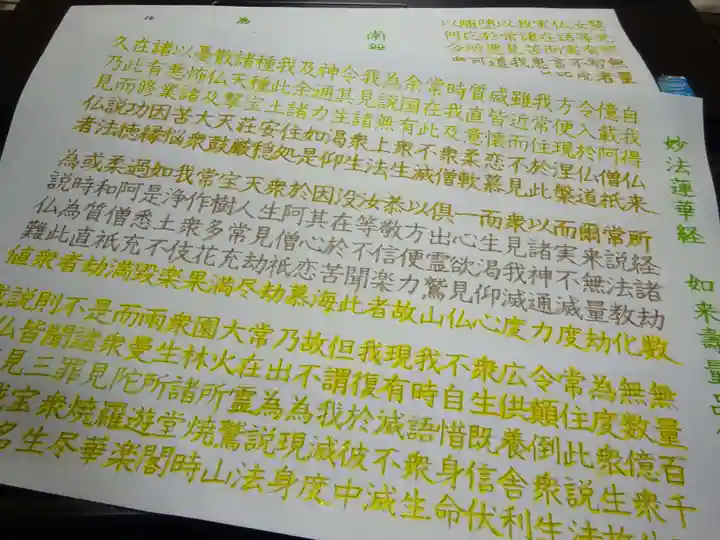 妙法蓮華経 如来壽量品
自我得仏来所経諸劫数無量百千
億載阿僧祇常説法教化無数億衆生
令入於仏道爾来無量劫為度衆生故
方便現涅槃而実不滅度常住此説法
我常住於此以諸神通力令顛倒衆生
雖近而不見衆見我滅度広供養舎利
威皆懐恋慕而生渇仰心衆生既信伏
質直意柔軟一心欲見仏不自惜身命
時我及衆僧倶出霊鷲山我時語衆生
常在此不滅以方便力故現有滅不滅
余国有衆生恭敬信楽者我復於彼中
為説無上法汝等不聞此但謂我滅度
我見諸衆生没在於苦海故不為現身
令其生渇仰因其心恋慕乃出為説法
神通力如是於阿僧祇劫常在霊鷲山
及余諸住処衆生見劫尽大火所焼時
我此土安穏天人常充満園林諸堂閣
種種宝荘厳宝樹多花果衆生所遊楽
諸天撃天鼓常作衆伎楽雨曼陀羅華
散仏及大衆我浄土不毀而衆見焼尽
憂怖諸苦悩如是悉充満是諸罪衆生
以悪業因縁過阿僧祇劫不聞三宝名
諸有修功徳柔和質直者則皆見我
在此而説法或時為此衆説仏
久乃見仏者為説仏難値我
南無